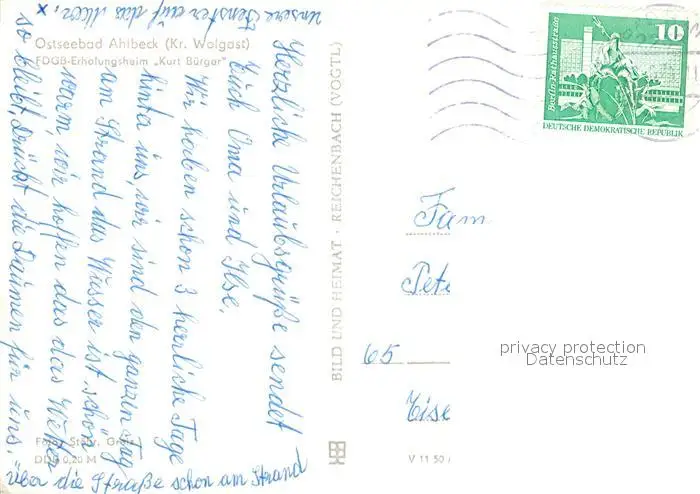 Ostseebad Ahlbeck (Kr. Wolgast)
FDGB-Erholungsheim „Kurt Bürger"
Herzliche Urlaubsgrüße sendet
Euch Oma und Ilse.
Wir haben schon 3 herrliche Tage
hinter uns, wir sind den ganzen Tag
am Strand das Wasser ist schön
warm, wir hoffen das das Wetter
so bleibt, drückt die Daumen für uns.
über die Straße schon am Strand
x unsere Fenster auf das Meer.
Foto: Stöhr, Greiz
DDR 0,20 M
BILD UND HEIMAT · REICHENBACH (VOGTL)
V 11 50
10
Berlin, Rathausstraße
DEUTSCHE DEMOKRATISCHE REPUBLIK
Fam
Pete
65
Eise
privacy protection
Datenschutz